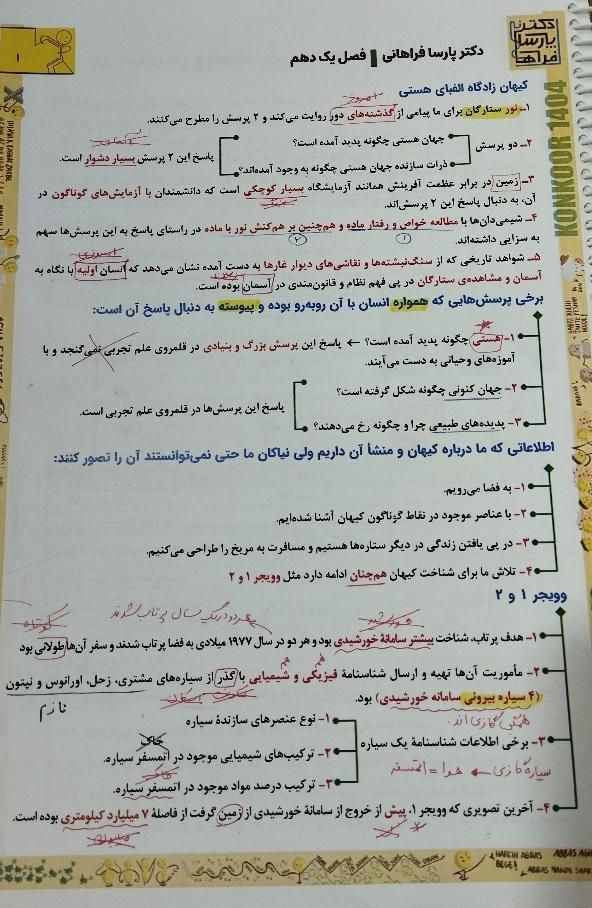 دکتر
پارسا
فراهانی
دکتر پارسا فراهانی | فصل یک دهم
۱
KONKOOR 1404
کیهان زادگاه الفبای هستی
امروز
۱- نور ستارگان برای ما پیامی از گذشته‌های دور روایت می‌کند و ۲ پرسش را مطرح می‌کنند.
۲- دو پرسش
جهان هستی چگونه پدید آمده است؟
ذرات سازنده جهان هستی چگونه به وجود آمده‌اند؟
آسان
پاسخ این ۲ پرسش بسیار دشوار است.
۳- زمین در برابر عظمت آفرینش همانند آزمایشگاه بسیار کوچکی است که دانشمندان با آزمایش‌های گوناگون در
آن، به دنبال پاسخ این ۲ پرسش‌اند.
۴- شیمی‌دان‌ها با مطالعه خواص و رفتار ماده و هم‌چنین بر هم‌کنش نور با ماده در راستای پاسخ به این پرسش‌ها سهم
به سزایی داشته‌اند.
۱
۲
۵- شواهد تاریخی که از سنگ‌نبشته‌ها و نقاشی‌های دیوار غارها به دست آمده نشان می‌دهد که انسان اولیه با نگاه به
آسمان و مشاهده‌ی ستارگان در پی فهم نظام و قانون‌مندی در آسمان بوده است.
برخی پرسش‌هایی که همواره انسان با آن روبه‌رو بوده و پیوسته به دنبال پاسخ آن است:
۱- هستی چگونه پدید آمده است؟ ← پاسخ این پرسش بزرگ و بنیادی در قلمروی علم تجربی نمی‌گنجد و با
آموزه‌های وحیانی به دست می‌آیند.
۲- جهان کنونی چگونه شکل گرفته است؟
۳- پدیده‌های طبیعی چرا و چگونه رخ می‌دهند؟
پاسخ این پرسش‌ها در قلمروی علم تجربی است.
اطلاعاتی که ما درباره کیهان و منشأ آن داریم ولی نیاکان ما حتی نمی‌توانستند آن را تصور کنند:
۱- به فضا می‌رویم.
۲- با عناصر موجود در نقاط گوناگون کیهان آشنا شده‌ایم.
۳- در پی یافتن زندگی در دیگر ستاره‌ها هستیم و مسافرت به مریخ را طراحی می‌کنیم.
۴- تلاش ما برای شناخت کیهان هم‌چنان ادامه دارد مثل وویجر ۱ و ۲
وویجر ۱ و ۲
هر دو در یک سال پرتاب شدند
خورشید
کوتاه
۱- هدف پرتاب، شناخت بیشتر سامانهٔ خورشیدی بود و هر دو در سال ۱۹۷۷ میلادی به فضا پرتاب شدند و سفر آن‌ها طولانی بود
هم
هم
۲- مأموریت آن‌ها تهیه و ارسال شناسنامهٔ فیزیکی و شیمیایی با گذر از سیاره‌های مشتری، زحل، اورانوس و نپتون
(۴ سیاره بیرونی سامانه خورشیدی) بود.
همگی گازی‌اند.
۳- برخی اطلاعات شناسنامهٔ یک سیاره
سیاره گازی ← هوا = اتمسفر
۱- نوع عنصرهای سازندهٔ سیاره
خاک
۲- ترکیب‌های شیمیایی موجود در اتمسفر سیاره.
خاک
۳- ترکیب درصد مواد موجود در اتمسفر سیاره.
۴- آخرین تصویری که وویجر ۱، پیش از خروج از سامانهٔ خورشیدی از زمین گرفت از فاصلهٔ ۷ میلیارد کیلومتری بوده است.
میلیون
HARCHI ABBAS
BEGE!